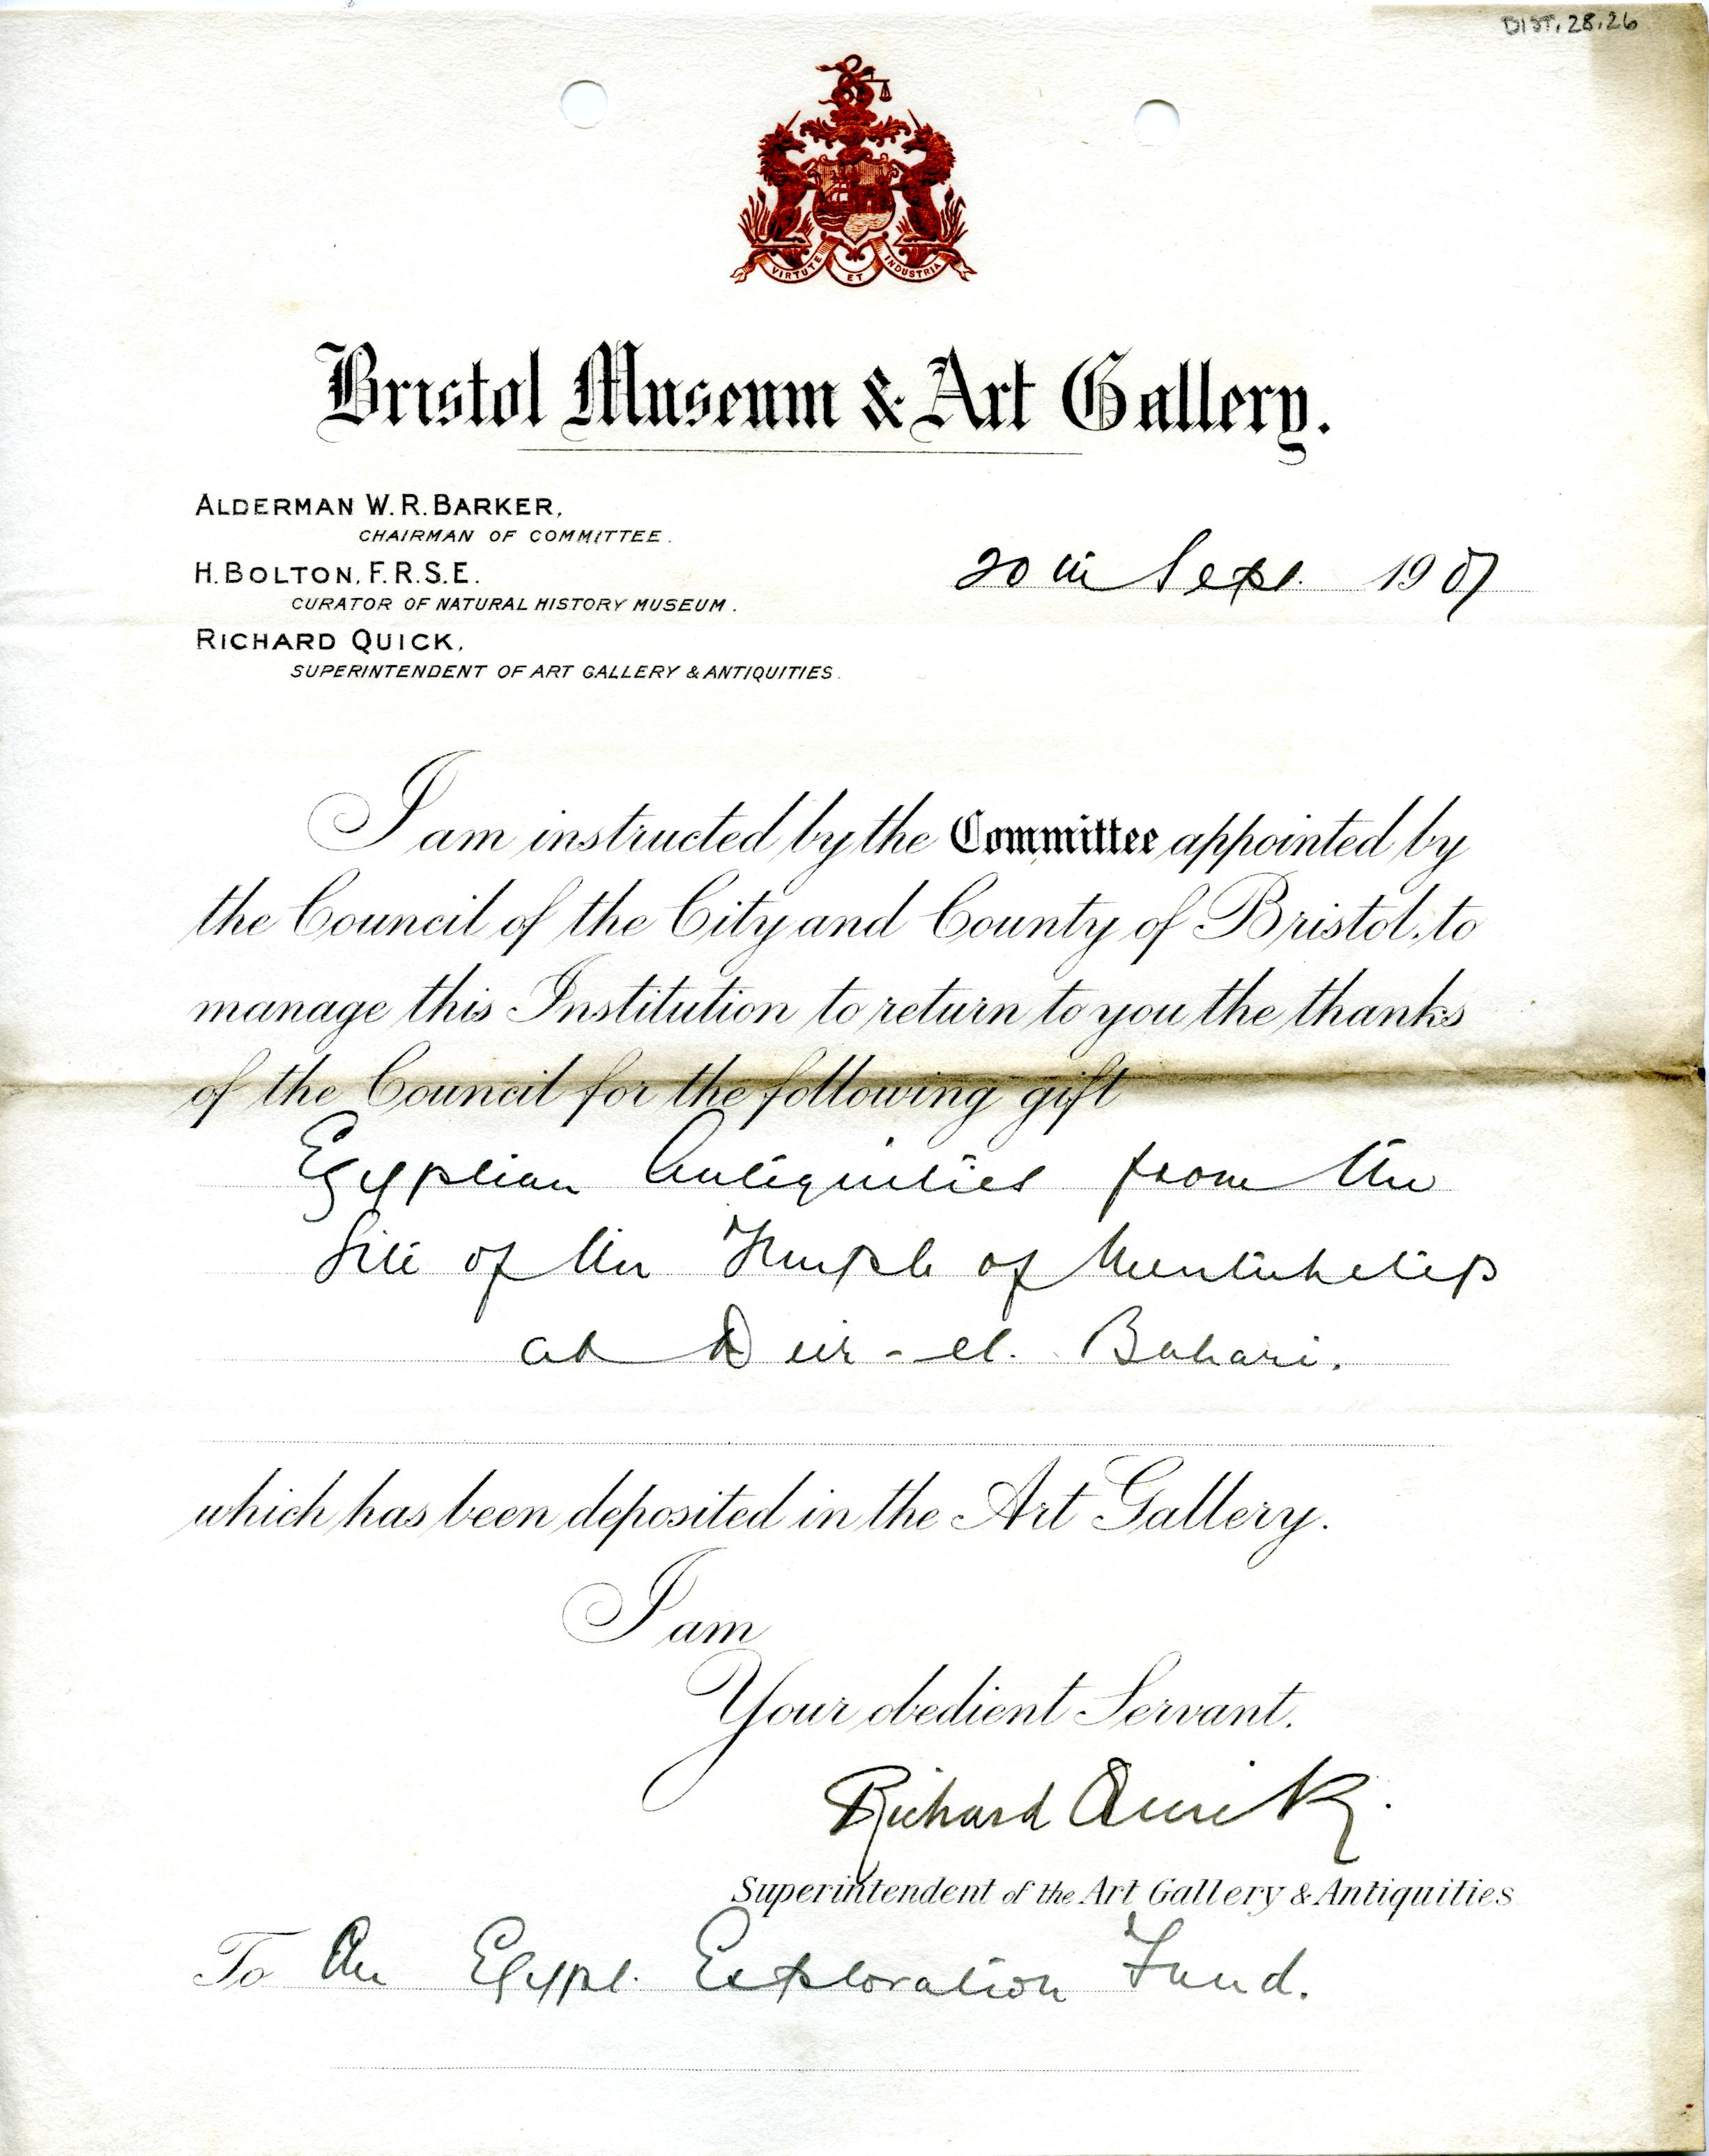 DIST.28.26
VIRTUTE ET INDUSTRIA
Bristol Museum & Art Gallery.
ALDERMAN W.R.BARKER,
CHAIRMAN OF COMMITTEE.
H.BOLTON, F.R.S.E.
CURATOR OF NATURAL HISTORY MUSEUM.
20th Sept. 1907
RICHARD QUICK,
SUPERINTENDENT OF ART GALLERY & ANTIQUITIES.
I am instructed by the Committee appointed by
the Council of the City and County of Bristol, to
manage this Institution to return to you the thanks
of the Council for the following gift
Egyptian Antiquities from the
Site of the Temple of Mentuhetep
at Deir-el. Bahari.
which has been deposited in the Art Gallery.
I am
Your obedient Servant.
Richard Quick.
Superintendent of the Art Gallery & Antiquities
To The Egypt. Exploration Fund.